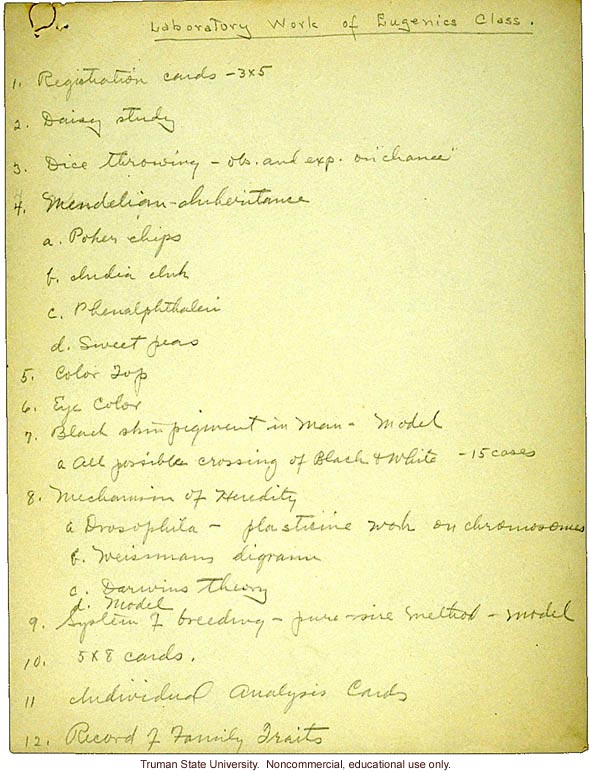 Laboratory Work of Eugenics Class.
1. Registration cards - 3x5
2. Daisy study
3. Dice throwing - obs. and exp. on "chance"
4. Mendelian-Inheritance
a. Poker chips
b. India Ink
c. Phenalphthalein
d. Sweet peas
5. Color Top
6. Eye Color
7. Black skin pigment in Man - Model
a All possible crossing of Black & White - 15 cases
8. Mechanism of Heredity
a Drosophila - plasticine work on chromosomes
b. Weissmans digram
c. Darwins theory
d. Model
9. System of breeding - pure-sire method - model
10. 5x8 cards.
11 Individual Analysis Cards
12. Record of Family Traits
Truman State University. Noncommercial, educational use only.